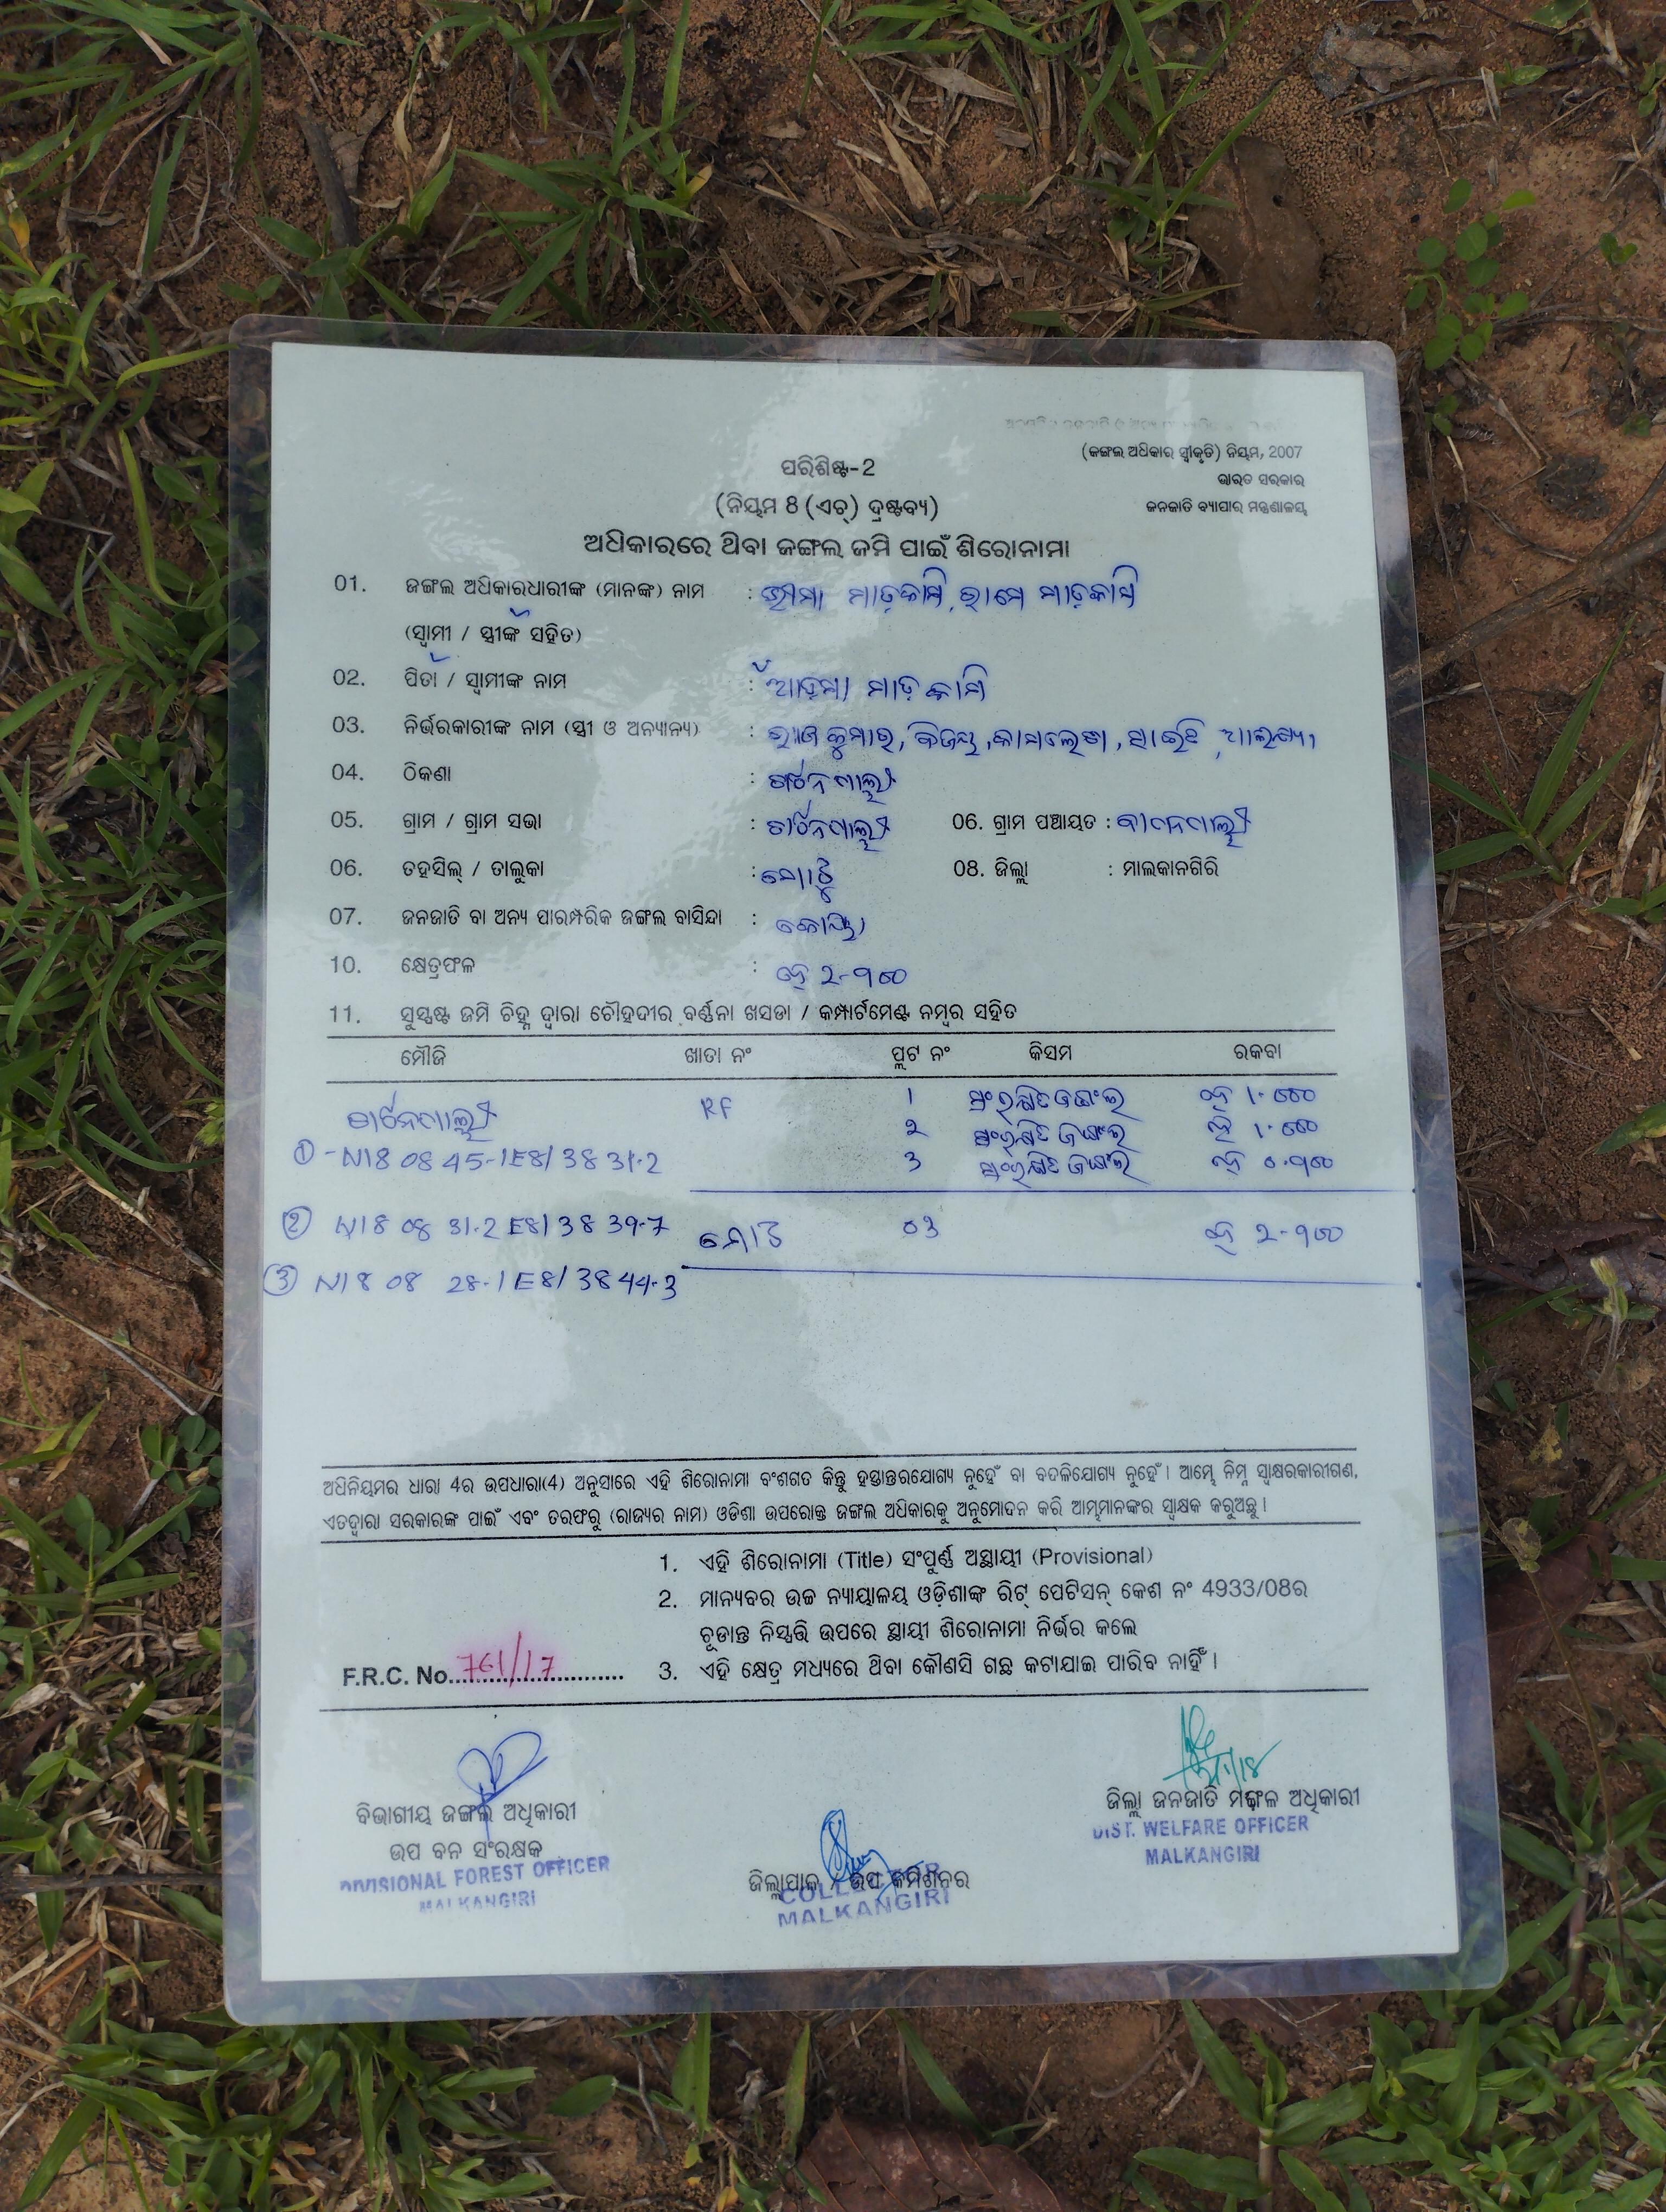 (ଜଙ୍ଗଲ ଅଧିକାର ସ୍ୱୀକୃତି) ନିୟମ, 2007
ପରିଶିଷ୍ଟ-2
ଭାରତ ସରକାର
(ନିୟମ 8 (ଏଚ୍) ଦ୍ରଷ୍ଟବ୍ୟ)
ଜନଜାତି ବ୍ୟାପାର ମନ୍ତ୍ରଣାଳୟ
ଅଧିକାରରେ ଥିବା ଜଙ୍ଗଲ ଜମି ପାଇଁ ଶିରୋନାମା
01. ଜଙ୍ଗଲ ଅଧିକାରଧାରୀଙ୍କ (ମାନଙ୍କ) ନାମ : ଭୀମା ମାଡ଼କାମି, ରାମେ ମାଡ଼କାମି
(ସ୍ୱାମୀ / ସ୍ତ୍ରୀଙ୍କ ସହିତ)
02. ପିତା / ସ୍ୱାମୀଙ୍କ ନାମ : ମାଡ଼କାମି
03. ନିର୍ଭରକାରୀଙ୍କ ନାମ (ସ୍ତ୍ରୀ ଓ ଅନ୍ୟାନ୍ୟ) : କୁମାର, ବିଜୟ,
04. ଠିକଣା :
05. ଗ୍ରାମ / ଗ୍ରାମ ସଭା : 06. ଗ୍ରାମ ପଞ୍ଚାୟତ :
06. ତହସିଲ୍ / ତାଲୁକା : ମୋଟୁ 08. ଜିଲ୍ଲା : ମାଲକାନଗିରି
07. ଜନଜାତି ବା ଅନ୍ୟ ପାରମ୍ପରିକ ଜଙ୍ଗଲ ବାସିନ୍ଦା : କୋୟା
10. କ୍ଷେତ୍ରଫଳ : ହେ ୨-୩୦୦
11. ସୁସ୍ପଷ୍ଟ ଜମି ଚିହ୍ନ ଦ୍ୱାରା ଚୌହଦୀର ବର୍ଣ୍ଣନା ଖସଡା / କମ୍ପାର୍ଟମେଣ୍ଟ ନମ୍ବର ସହିତ
ମୌଜି ଖାତା ନଂ ପ୍ଲଟ ନଂ କିସମ ରକବା
RF 1 ସଂରକ୍ଷିତ ଜଙ୍ଗଲ ହେ ୧.୦୦୦
୨ ସଂରକ୍ଷିତ ଜଙ୍ଗଲ ହେ ୧.୦୦୦
① - N18 08 45.1 E81 38 31.2 ୩ ସଂରକ୍ଷିତ ଜଙ୍ଗଲ ହେ ୦.୩୦୦
② N18 08 31.2 E81 38 39.7 ମୋଟ ୦୩ ହେ ୨-୩୦୦
③ N18 08 28.1 E81 38 44.3
ଅଧିନିୟମର ଧାରା 4ର ଉପଧାରା(4) ଅନୁସାରେ ଏହି ଶିରୋନାମା ବଂଶଗତ କିନ୍ତୁ ହସ୍ତାନ୍ତରଯୋଗ୍ୟ ନୁହେଁ ବା ବଦଳିଯୋଗ୍ୟ ନୁହେଁ । ଆମ୍ଭେ ନିମ୍ନ ସ୍ୱାକ୍ଷରକାରୀଗଣ,
ଏତଦ୍ୱାରା ସରକାରଙ୍କ ପାଇଁ ଏବଂ ତରଫରୁ (ରାଜ୍ୟର ନାମ) ଓଡିଶା ଉପରୋକ୍ତ ଜଙ୍ଗଲ ଅଧିକାରକୁ ଅନୁମୋଦନ କରି ଆମ୍ଭମାନଙ୍କର ସ୍ୱାକ୍ଷକ କରୁଅଛୁ ।
1. ଏହି ଶିରୋନାମା (Title) ସଂପୂର୍ଣ୍ଣ ଅସ୍ଥାୟୀ (Provisional)
2. ମାନ୍ୟବର ଉଚ୍ଚ ନ୍ୟାୟାଳୟ ଓଡ଼ିଶାଙ୍କ ରିଟ୍ ପେଟିସନ୍ କେଶ ନଂ 4933/08ର
ଚୂଡାନ୍ତ ନିସ୍ପତ୍ତି ଉପରେ ସ୍ଥାୟୀ ଶିରୋନାମା ନିର୍ଭର କଲେ
F.R.C. No. 761/17 3. ଏହି କ୍ଷେତ୍ର ମଧ୍ୟରେ ଥିବା କୌଣସି ଗଛ କଟାଯାଇ ପାରିବ ନାହିଁ ।
ବିଭାଗୀୟ ଜଙ୍ଗଲ ଅଧିକାରୀ
ଉପ ବନ ସଂରକ୍ଷକ
DIVISIONAL FOREST OFFICER
MALKANGIRI
ଜିଲ୍ଲାପାଳ / ଉପ କମିଶନର
COLLECTOR
MALKANGIRI
ଜିଲ୍ଲା ଜନଜାତି ମଙ୍ଗଳ ଅଧିକାରୀ
DIST. WELFARE OFFICER
MALKANGIRI